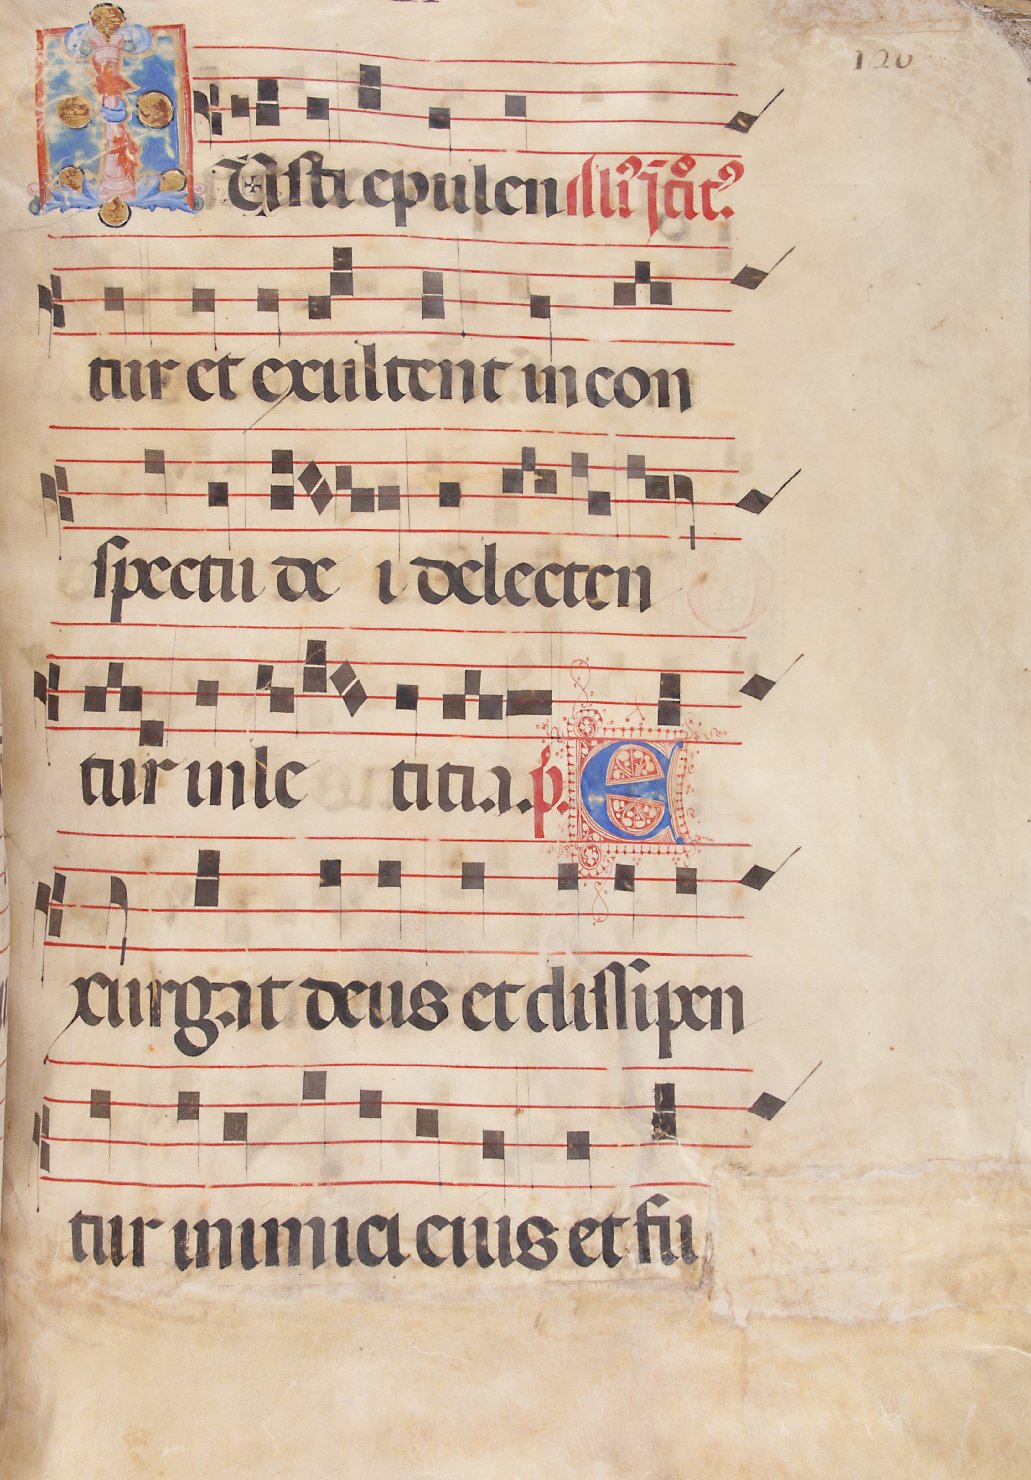 120
IUsti epulen
tur et exultent in con
spectu de i delecten
tur in le titi.a. p.
E
xurgat deus et dissipen
tur inimici eius et fu